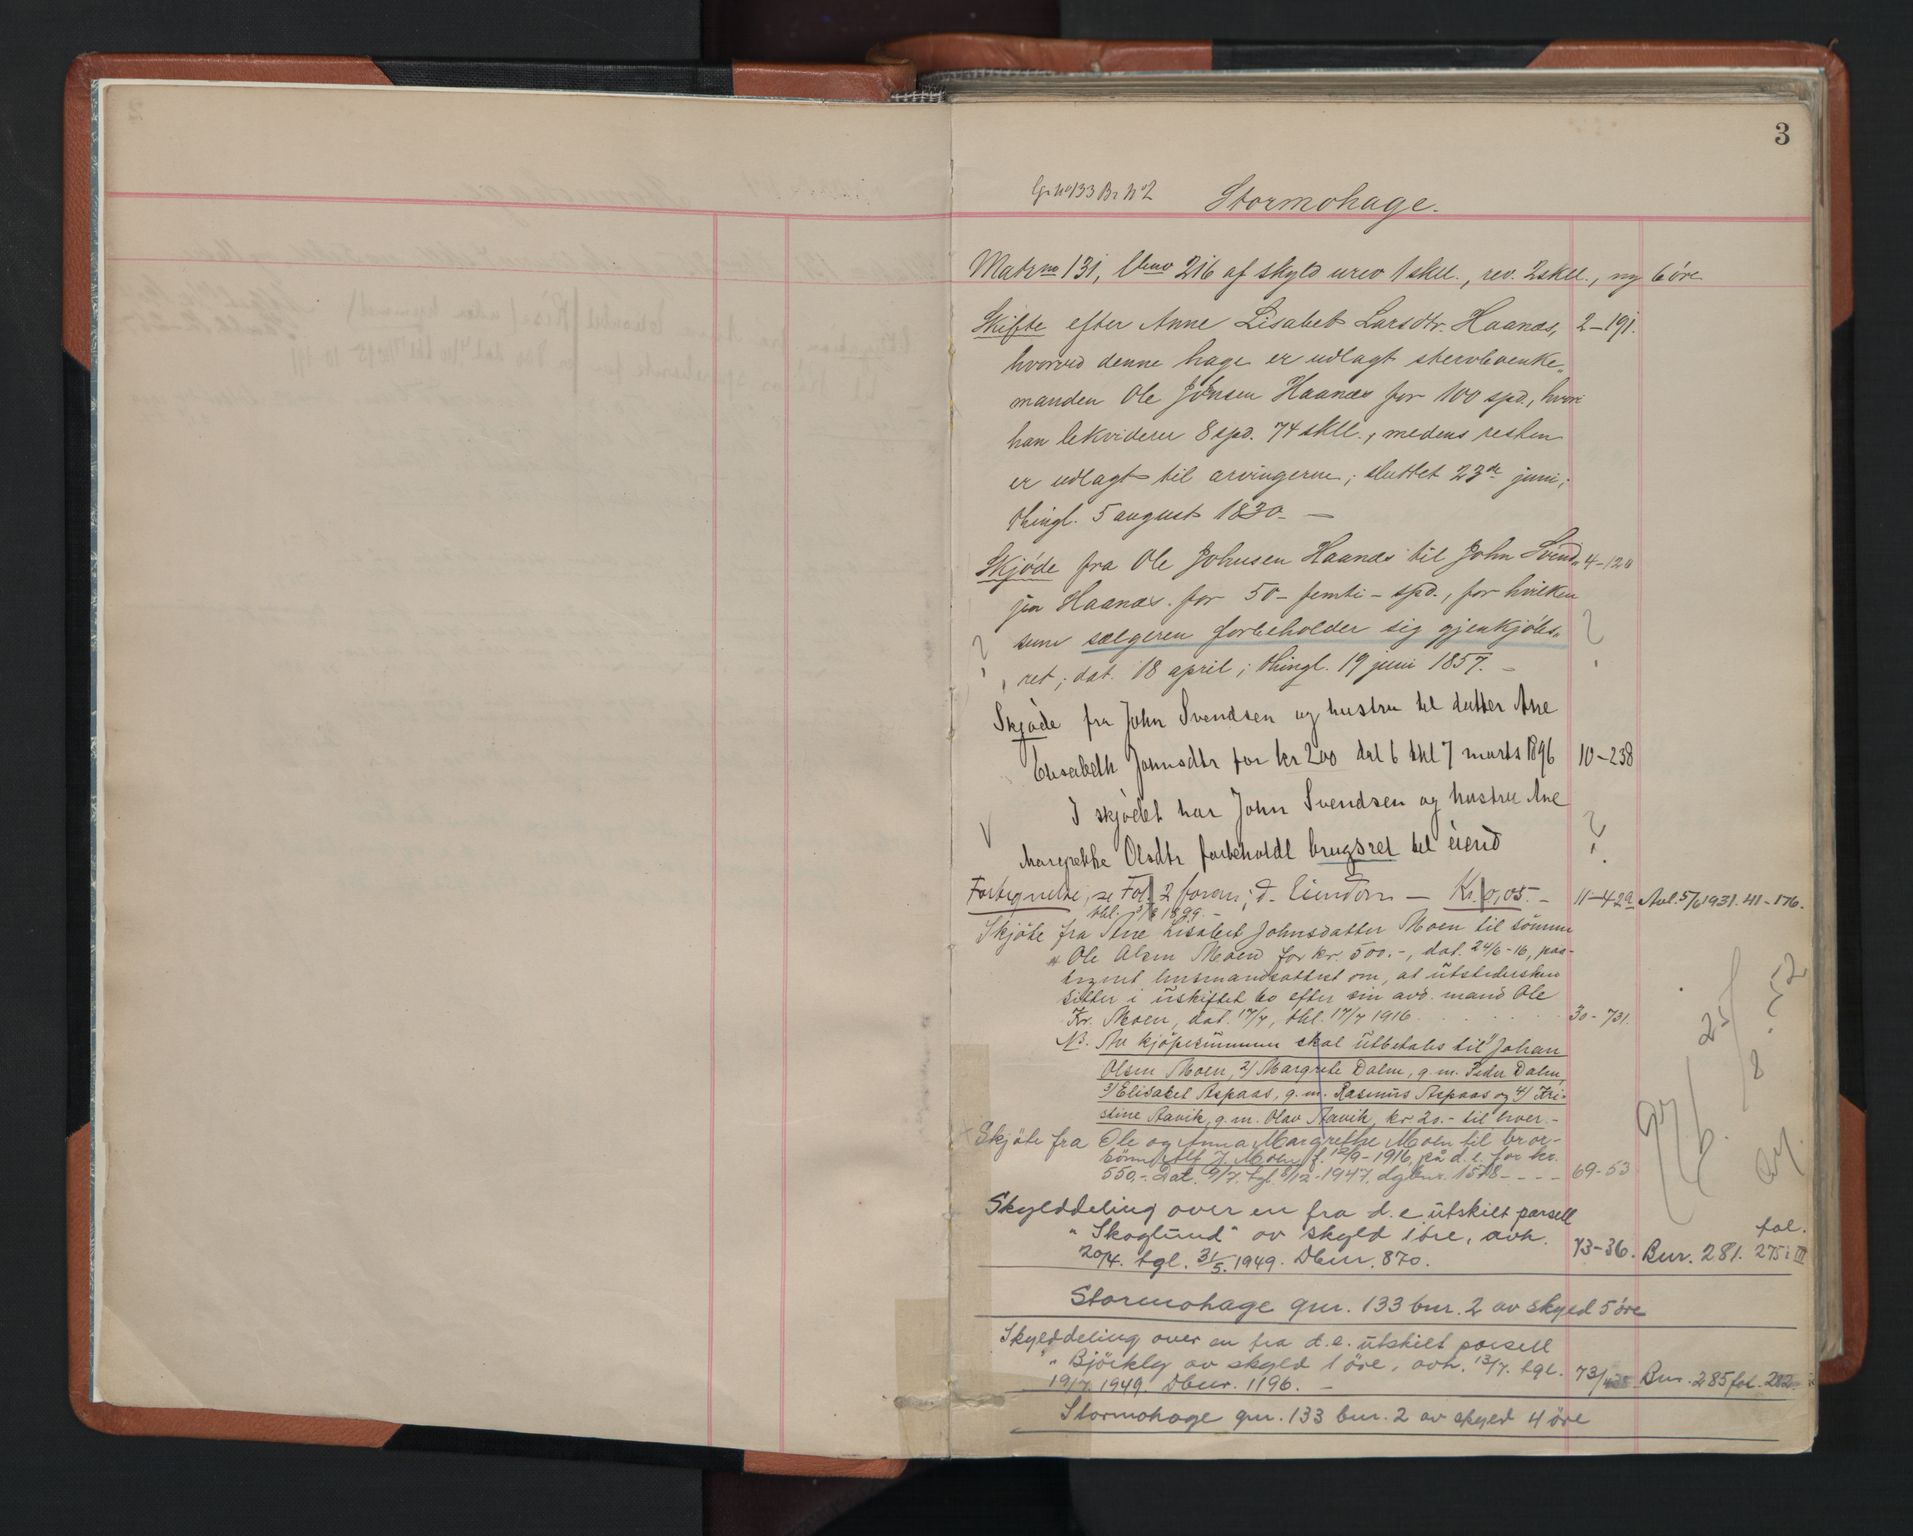 3
Gr No 133 Br No 2 Stormohage.
Matr no 131, Lbno 216 af skyld urev 1 skll., rev. 2 skll., ny 6 öre
Skifte efter Anne Lisabet Larsdtr. Haanæs, 2-191.
hvorved denne hage er udlagt stervboenke-
manden Ole Johnsen Haanæs for 100 spd., hvori
han lekviderer 8 spd. 74 skll., medens resten
er udlagt til arvingerne; sluttet 23de juni;
thingl. 5 august 1830. —
Skjöde fra Ole Johnsen Haanæs til John Svend- 4-120
sen Haanæs for 50 - femti - spd., for hvilken
sum sælgeren forbeholder sig gjenkjöbs- ?
? ret; dat. 18 april; thingl. 19 juni 1857. —
Skjøde fra John Svendsen og hustru til datter Ane
Elisabeth Johnsdtr for kr 200 dat 6 thl 7 marts 1896 10-238
I skjödet har John Svendsen og hustru Ane ?
Margrethe Olsdtr forbeholdt brugsret til eiend
Fortegnelse, se Fol. 2 foran; d. Eiendom — Kr. 0,05. — 11-429 Avl. 5/6 1931. 41-176.
thl. 3/8 1899. —
Skjöte fra Ane Lisabet Johnsdatter Moen til sönnen
Ole Olsen Moen for kr. 500.-, dat. 24/6-16, paa-
tegnet lensmandsattest om, at utstedersken
sitter i uskiftet bo efter sin avd. mand Ole
Kr. Moen, dat. 17/7, thl. 17/7 1916 . . . . . 30-731.
NB. Av kjöpesummen skal utbetales til 1/ Johan
Olsen Moen, 2/ Margrete Dalen, g.m. Peder Dalen,
3/ Elisabet Aspaas, g.m. Rasmus Aspaas og 4/ Kri-
stine Aavik, g.m. Olav Aavik, kr 20.- til hver.-
Skjöte fra Ole og Anna Margrethe Moen til bror-
sönn Alf J. Moen f. 12/9-1916, på d.e. for kr.
550.- Dat. 9/7. tgl. 8/12-1947. dgbnr. 1578 - - - - 69-53
Skylddeling over en fra d.e utskilt parsell
"Skoglund" av skyld 1 öre, avh. 73-36. Bnr. 281. fol. 275 i III
20/4. tgl. 31/5. 1949. Dbnr. 870.
Stormohage gnr. 133 bnr. 2 av skyld 5 öre
Skylddeling over en fra d.e. utskilt parsell
"Björkly av skyld 1 öre, avh. 13/7. tgl. 73/ Bnr. 285 fol. 282
19/7. 1949. Dbnr. 1196. —
Stormohage gnr. 133 bnr. 2 av skyld 4 öre